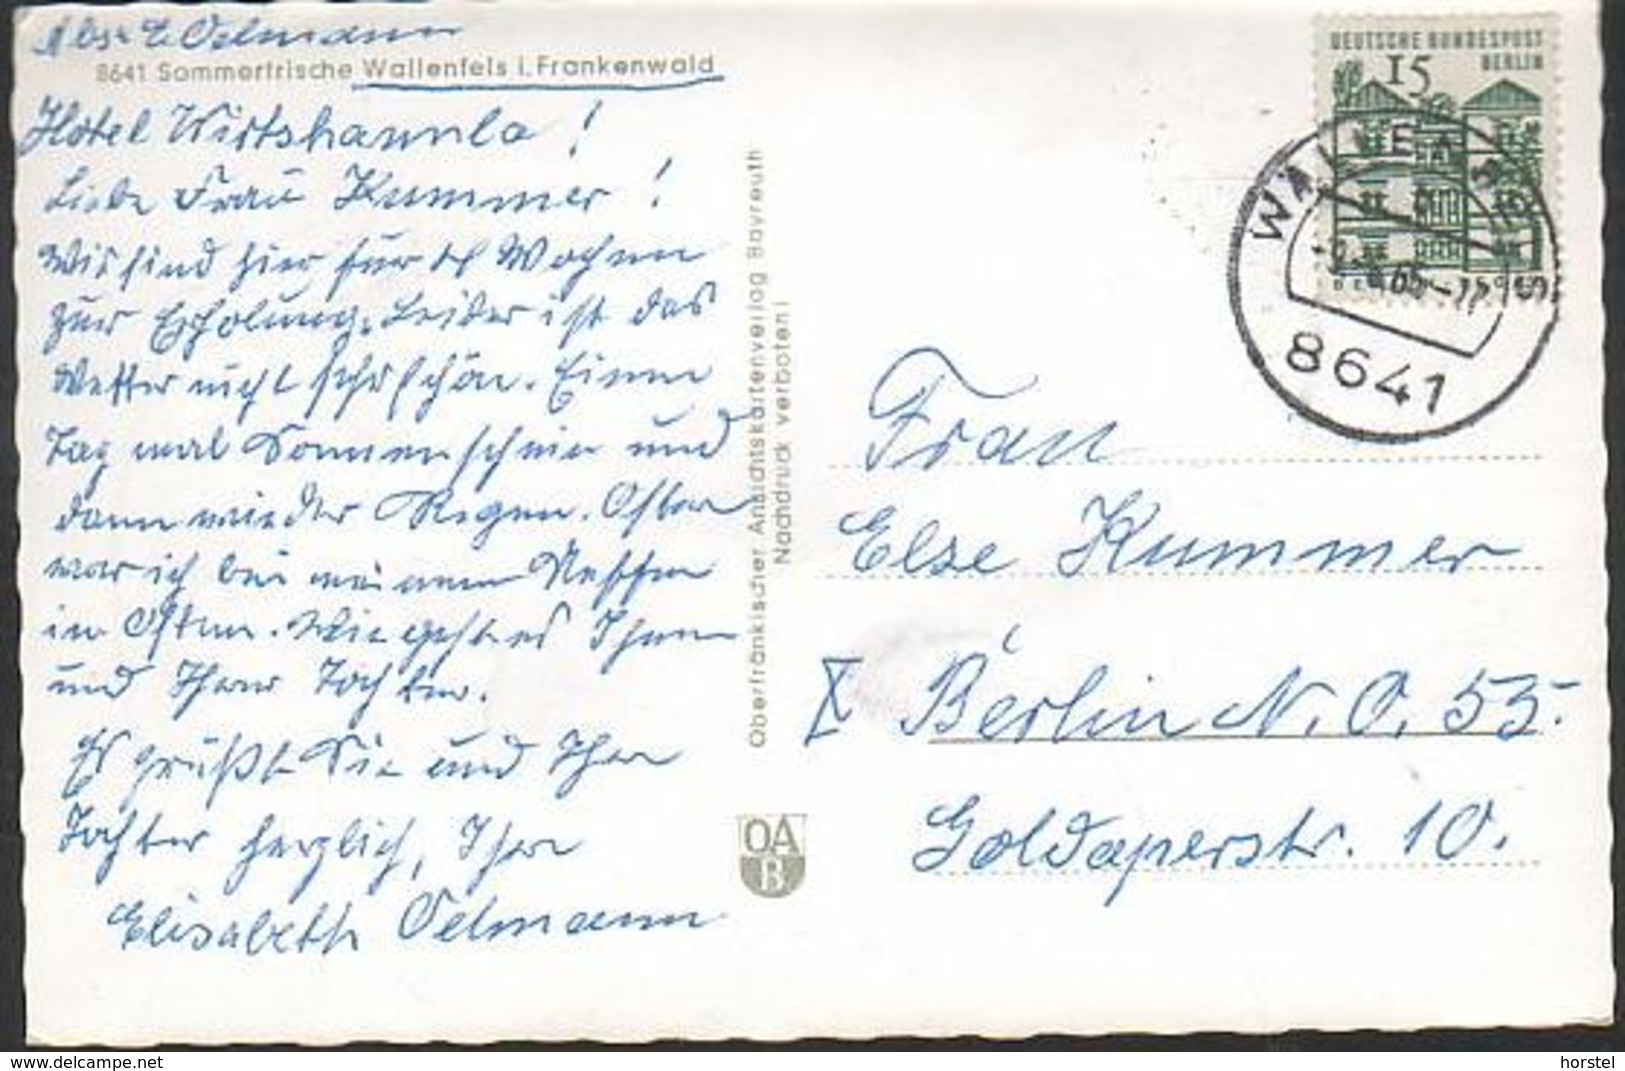 Abs. E. Oelmann
8641 Sommerfrische Wallenfels i. Frankenwald
Hotel Wirtshannla!
Liebe Frau Kummer!
Wir sind hier für Wochen
zur Erholung. Leider ist das
Wetter nicht sehr schön. Einen
Tag mal Sonnenschein und
dann wieder Regen. Ostern
war ich bei meinem Neffen
in Osten. Wie geht es Ihnen
und Ihrer Tochter.
Es grüßt Sie und Ihre
Tochter herzlich, Ihre
Elisabeth Oelmann
Oberfränkischer Ansichtskartenverlag Bayreuth
Nachdruck verboten!
OA
B
DEUTSCHE BUNDESPOST
BERLIN
15
WALLENFELS
8641
Frau
Else Kummer
X Berlin N.O. 55.
Goldaperstr. 10.
www.delcampe.net
horstel